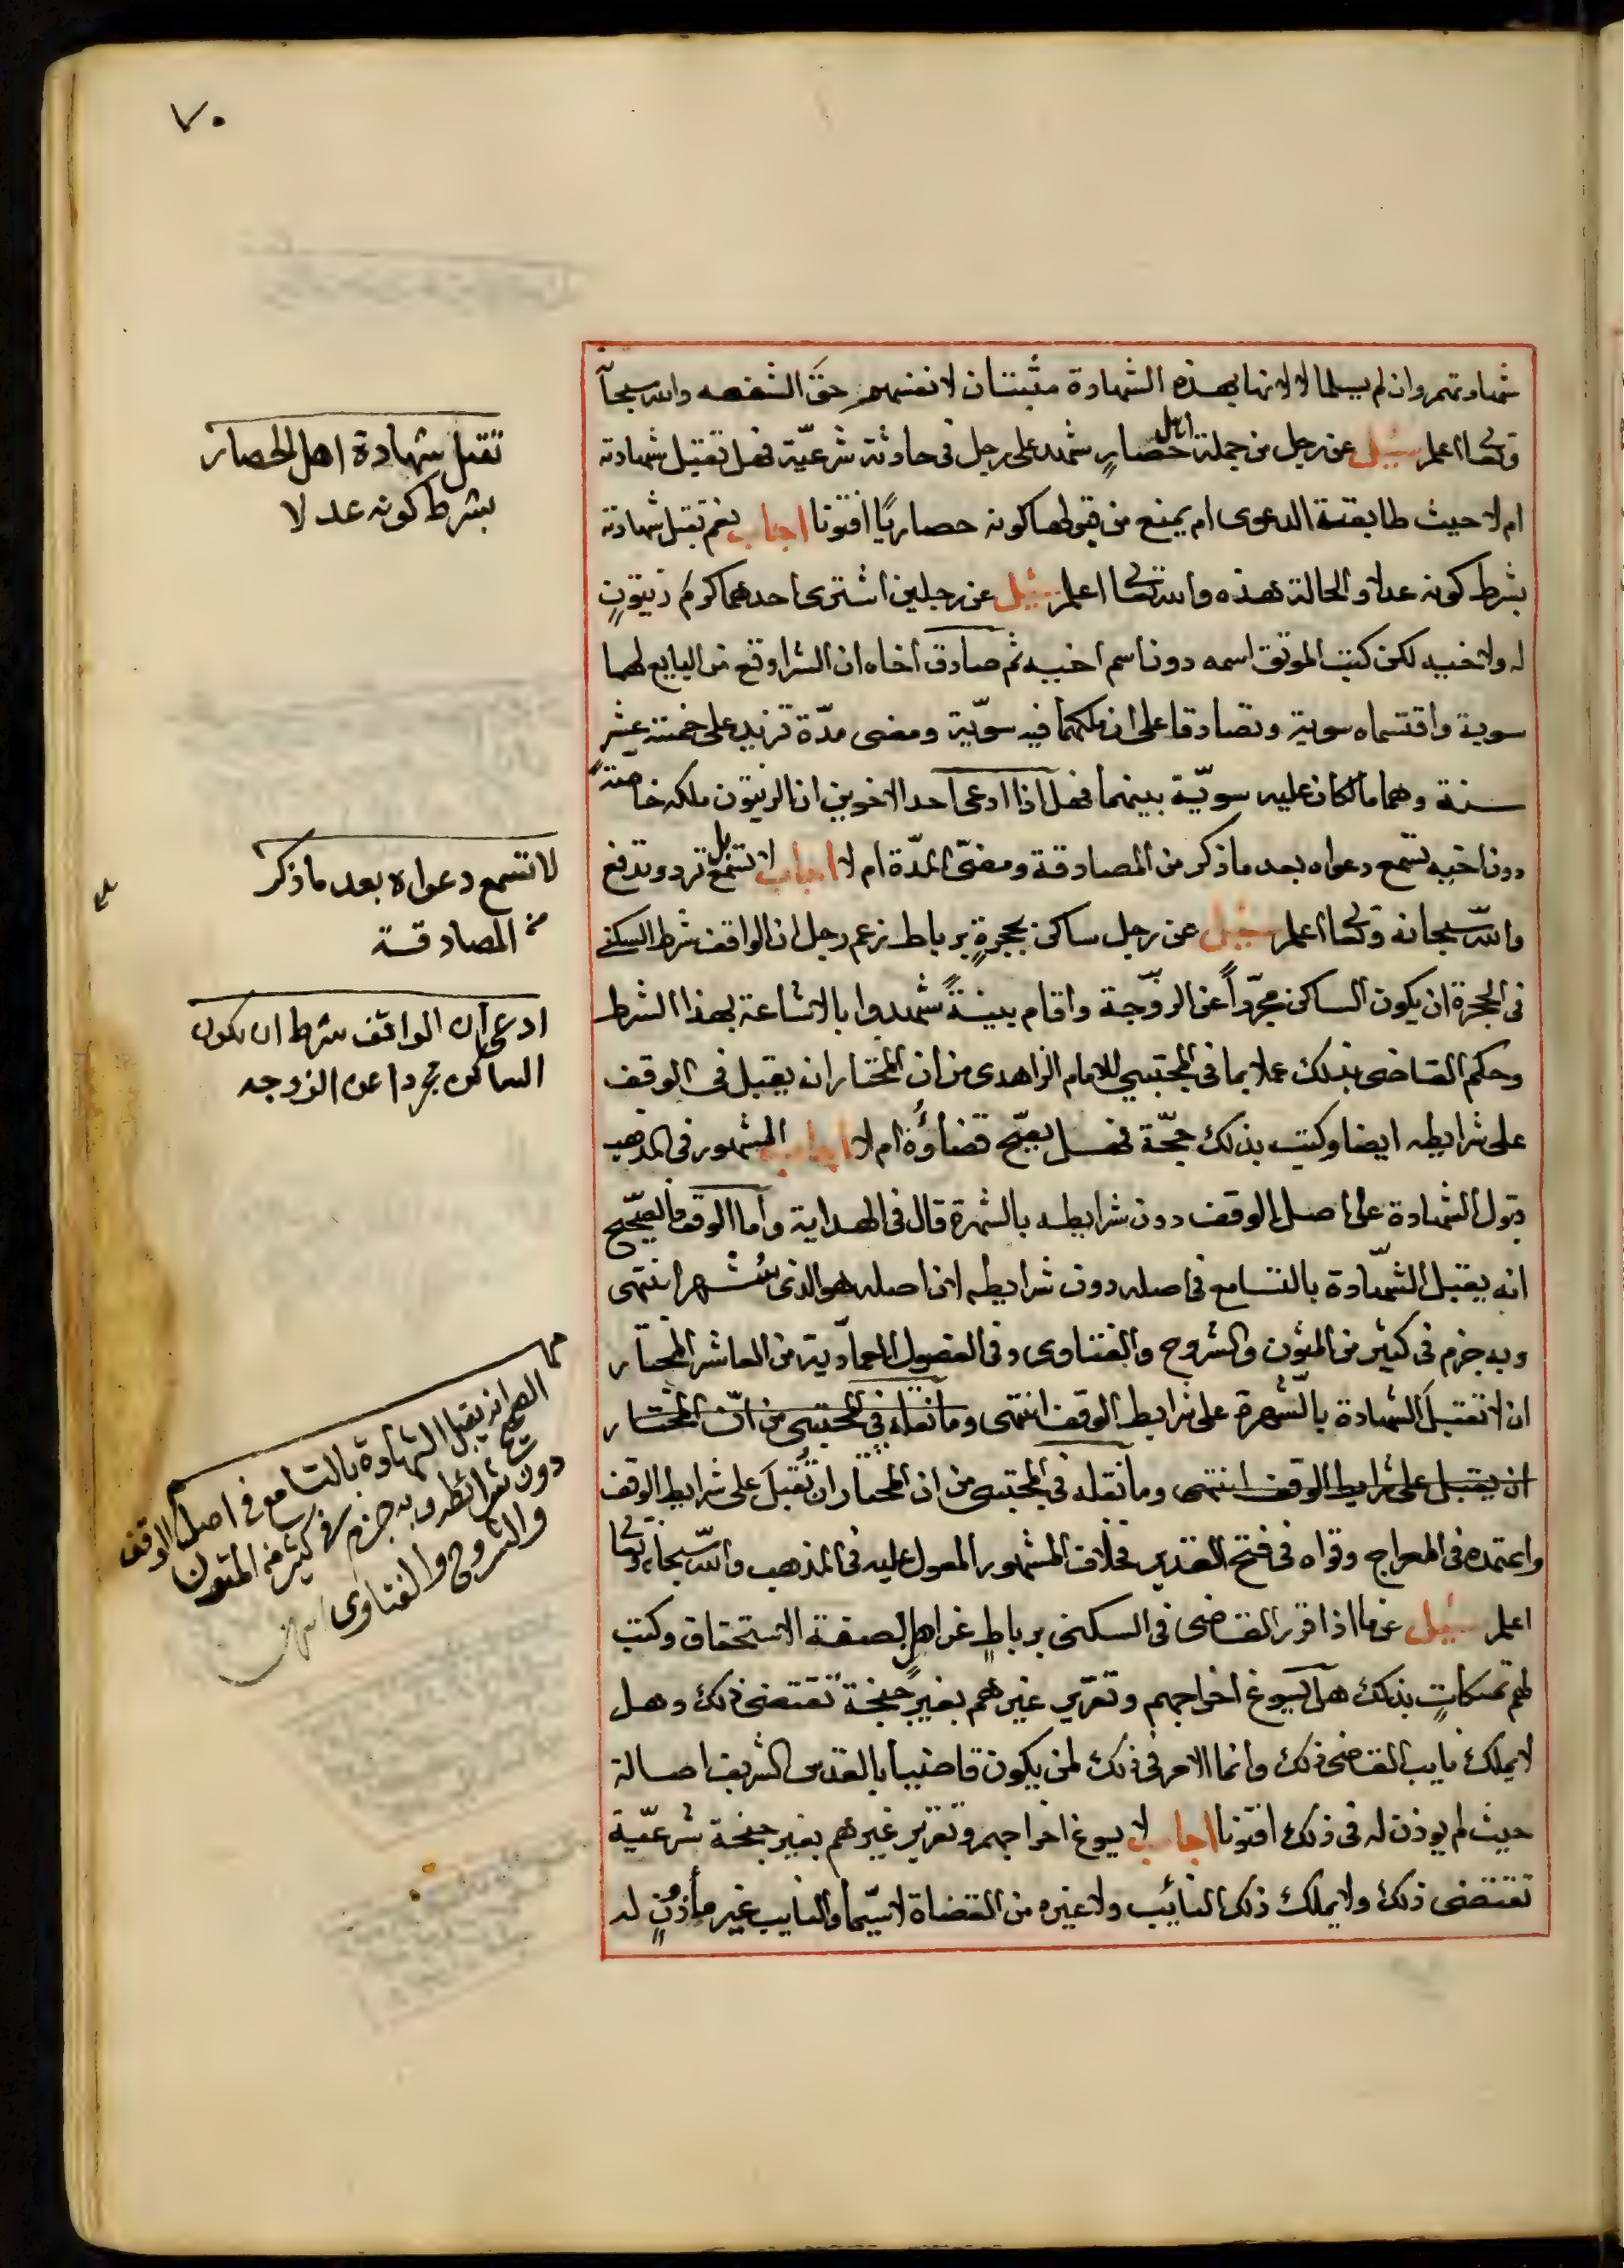 ٧٠
شهادتهم وان لم يسلما لا لانها بهذه الشهادة مثبتان لانفسهم حق الشفعه والله سبحا
وتعالى اعلم سئل عن رجل من جملة اهل حصار شهد على رجل في حادثة شرعيّة فهل تقبل شهادته
ام لا حيث طابقت الدعوى ام يمنع من قبولها كونه حصاريًا افتونا اجاب نعم تقبل شهادته
بشرط كونه عدلا والحالة هذه والله تعالى اعلم سئل عن رجلين اشترى احدهما كرم زيتونٍ
له ولاخيه لكن كتب الموثق اسمه دون اسم اخيه ثم صادق اخاه ان الشرا وقع من البايع لهما
سوية واقتسماه سوية وتصادقا على ان ملكهما فيه سويّة ومضى مدّة تزيد على خمسة عشر
سنة وهما مالكان عليه سويّة بينهما فهل اذا ادعى احد الاخوين ان الزيتون ملكه خاصّة
دون اخيه تسمع دعواه بعد ما ذكر من المصادقة ومضىّ المدّة ام لا اجاب لا تسمع بل ترد وتدفع
والله سبحانه وتعالى اعلم سئل عن رجل ساكن بحجرةٍ برباط زعم رجل ان الواقف شرط السكنى
في الحجرة ان يكون الساكن مجرّداً عن الزوّجة واقام بينةً شهدوا بالاشاعة بهذا الشرط
وحكم القاضى بذلك عملا بما في المجتبى للامام الزاهدى من ان المختار انه يقبل في الوقف
على شرايطه ايضا وكتب بذلك حجّة فهل يصحّ قضاؤُه ام لا اجاب المشهور في المذهب
قبول الشهادة على اصل الوقف دون شرايطه بالشهرة قال في الهداية وأما الوقف فالصحّيح
انه يقبل الشهّادة بالتسامع في اصله دون شرايطه لان اصله هو الذى يشهر انتهى
وبه جزم في كثير من المتون والشروح والفتاوى وفى الفصول العماديّة من العاشر المختار
ان لا تقبل الشهادة بالشّهرة على شرايط الوقف انتهى وما نقله في المجتبى من انّ المختار
ان يقبل على شرايط الوقف انتهى وما نقله في المجتبى من ان المختار ان تُقبل على شرايط الوقف
واعتمده في المعراج وقواه في فتح القدير فخلاف المشهور المعول عليه في المذهب والله سبحانه وتعا
اعلم سئل عما اذا قرر القاضى في السكنى برباطٍ غرا اهل لصفة الاستحقاق وكتب
لهم تمسكاتٍ بذلك هل يسوغ اخراجهم وتقرير غيرهم بغير جنحةٍ تقتضى ذلك وهل
لا يملك نايب القاضى ذلك وانما الامر في ذلك لمن يكون قاضيا بالقدس الشريف اصالة
حيث لم يوذن له في ذلك افتونا اجاب لا يسوغ اخراجهم وتقرير غيرهم بغير جنحة شرعيّة
تقتضى ذلك ولا يملك ذلك النائب ولا غيره من القضاة لا سيّما والنايب غير مأذونٍ له
تقبل شهادة اهل الحصار
بشرط كونه عدلا
لا تسمع دعواه بعد ما ذكر
من المصادقة
ادعى ان الواقف شرط ان يكون
الساكن مجردا عن الزوجه
الصحيح انه يقبل الشهادة بالتسامع في اصل الوقف
دون شرائطه وبه جزم في كثير من المتون
والشروح والفتاوى